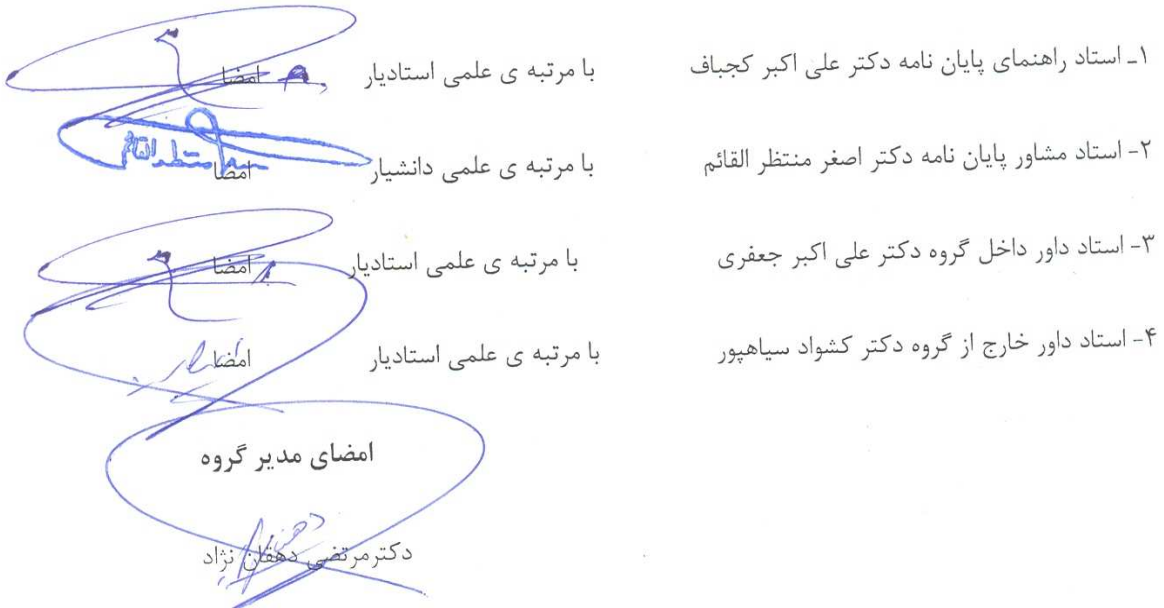 ۱ـ استاد راهنمای پایان نامه دکتر علی اکبر کجباف با مرتبه ی علمی استادیار امضا
۲- استاد مشاور پایان نامه دکتر اصغر منتظر القائم با مرتبه ی علمی دانشیار امضا
منتظرالقائم
۳- استاد داور داخل گروه دکتر علی اکبر جعفری با مرتبه ی علمی استادیار امضا
۴- استاد داور خارج از گروه دکتر کشواد سیاهپور با مرتبه ی علمی استادیار امضا
امضای مدیر گروه
دکترمرتضی دهقان نژاد